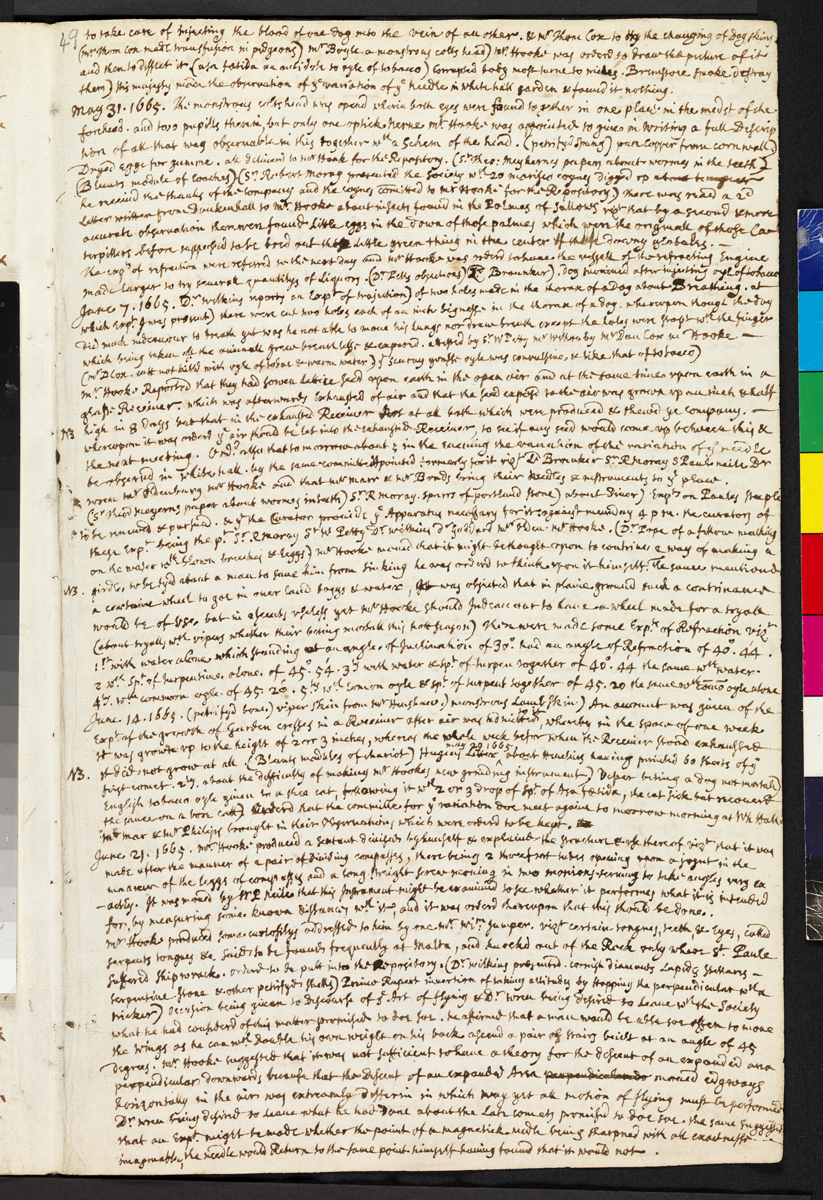 49 to take care of injecting the bloud of one dog into the vein of another. & mr Thom Cox to try the changing of Dog skins.
(mr Thom Cox made transfusion in pidgeons) mr Boyle a monstrous colts head) mr Hooke was orderd to draw the picture of it
and then to dissect it (asa fatida an antidote to oyle of tobacco) corrupted body most turne to nitches. Brimstone smoke destroy
them) His majesty made the observation of ye variation of ye needle in white hall garden & found it nothing.
May 31. 1665. The monstrous colts head was opend wherin both eyes were found together in one place in the medst of the
forhead. and two pupills therin, but only one optick nerve mr. Hooke was appointed to give in writing a full Descrip
tion of all that was observable in this together wth a schem of the head. (petrifyd Dung) pure copper from cornwall)
Dryed eggs for Junone. all deliverd to mr Hook for the Repository. (Sr. Theo: Meyhernes papers about wormes in the teeth)
(Blunts module of Coaches) (Sr. Robert Moray presented the Society wth 20 coynes digged up
he receivd the thanks of the company and the coynes comitted to mr Hooke for the Repository) There was read a 2d
Letter written from Duckenhall to mr. Hooke about insects found in the Polmes of Sallows vizt that by a second & more
accurate observation there were found Little eggs in the Down of those palmes which were the originalls of those Ca
terpillers before supposed to be bred out the Little green thing in the center of those downy globules. —
The expts of refraction were referred to the next day and mr Hooke was orderd to have the vessell of the refracting Engine
made larger to try severall quantitys of Liquors. (Dr Petts objections) Ld. Brounker). Dog survived after injecting oyl of tobacco
June 7. 1665. Dr. Wilkins reports an Expt of trajection) of two holes made in the thorax of a dog about Breathing. at
which Expt (I was present) there were cut two holes each of an inch bignesse in the thorax of a dog. wherupon though the dog
did much indeavour to breath yet was he not able to move his lungs nor draw breath except the holes were stopt wth the finger
which being taken off the animall grew breathlesse & expired. attested by Sr W Petty mr Wilkins by mr Dan Cox mr Hooke —
(mr D Cox. catt not killd with oyle of tobac & warm water) ye second grosse oyle was convulsive, & like that of tobacco)
mr. Hooke Reported that they had sowen Lettice seed upon earth in the open air and at the same time upon earth in a
glasse Receiver. which was afterwards exhausted of air and that the seed exposed to the air was grown up an inch & half
high in 8 days but that in the exhausted Receiver Not at all both which were produced & shewd ye company. —
NB wherupon it was orderd yt air should be let into the exhausted Receiver, to see if any seed would come up between this &
the next meeting. Ordrd. also that to morrow about 3 in the Evening the variation of the variation of ye needle
be observed in White hall. by the same committe appointed formerly for it vizt Ld Brouncker Sr. R Moray S Paul neile Dr
wren mr Oldenburg mr Hooke and that mr marr & mr Bonds bring their Needles & instruments to ye place.
(Sr Theod Meyerns paper about wormes in teeth) Sr. R moray. sparrs of portland stone) about Diver) Expts on Paules steple
to be renewed & pursued. & yt the Curator provide ye Apparatus necessary for it against munday 4 p m. the curators of
these Expts. being the pr. Sr. R moray Sr W Petty Dr. wilkins Dr. Goddard mr. Hooke. (Dr. Pope of a fellow walking
on the water wth blown breeches & leggs) mr Hooke moved that it might be thought upon to contrive a way of making a
girdle, to be tyed about a man to save him from sinking he was orderd to think upon it himself. The same mentiond
NB. a certaine wheel to goe in over Land boggs & water, it was objected that in plaine ground such a contrivance
would be of use, but in ascents uselesse yet mr Hooke should Indeavour to have a wheel made for a tryall
(about tryalls wth vipers whether their biting mortall this hott season) There were made some Expts. of Refraction vizt
1st. with water alone which standing at an angle of Inclination of 30°. had an angle of Refraction of 40°. 44.
2 wth Spt. of turpentine. alone. of 45°. 54. 3d with water & spt of turpen together of 40°. 44 the same wth water.
4th. wth common oyle. of 45. 20. 5th. wth comon oyle & spt. of turpent together of 45. 20 the same wth comon oyle alone
June. 14. 1665. (petrifyd bone) viper skin from) monstrous Lamb skin) An account was given of the
Expt. of the growth of Garden cresses in a Receiver after air was admitted into it, wherby in the space of one week
it was growne up to the height of 2 or 3 inches, wheras the whole week befor when the Receiver stood exhausted
NB. it did not grow at all. (Blunts modules of chariot) Hugens Letter may 29 1665 about Hevelius having printed 60 sheets of ye
first comet. 2ly. about the difficulty of making mr Hookes new grinding instrument) Viper biting a dog not mortall
English tobacco oyle given to a shee cat, following it wth 2 or 3 drop of spt of Asa fatida, the cat sick but recoverd
the same on a bore catt) Orderd that the committe for ye variation doe meet again to morrow morning at Wh Hall
mr mar & mr Philips brought in their observations, which were orderd to be kept.
June. 21. 1665. mr Hooke produced a Sextant devised by himself & explained the structure & use therof vizt that it was
made after the manner of a pair of dividing compasses, there being 2 three foot tubes opening upon a joynt in the
manner of the leggs of compasses and a long streight screw moving in two motions serving to take angles very ex
actly. It was moved by Sr P Neile that this Instrument might be examined to see whether it performes what it is intended
for, by measuring some known distances wth it, and it was orderd therupon that this should be done.
mr Hooke produced some curiositys addressed to him by one mr. Wm. Juniper. vizt certain tongues, teeth & eyes, called
serpents tongues &c. said to be found frequently at Malta, and knockd out of the Rock only wher St. Paule
suffered shipwrack. orderd to be put into the Repository. (Dr. wilkins presented. cornish diamants Lapides stellaris —
serpentine stone & other petrifyd shells) Prince Rupert invention of taking altitudes by stopping the perpendicular wth a
tricker) occasion being given to Discourse of ye Art of flying & Dr. wren being desired to leave wth the Society
what he had considerd of this matter promised to doe soe. he affirmed that a man would be able soe often to move
the wings as he can wth. double his own weight on his back ascend a pair of stairs built at an angle of 45
degrees. mr. Hooke suggested that it was not sufficient to have a theory for the descent of an expanded area
perpendicular downwards because that the Descent of an expanded Area moved edgways
horizontally in the air was extreamly differin in which way yet all motion of flying must be performed
Dr. wren being desired to Leave what he had done about the Late comets promised to doe soe. the same suggested
that an Expt. might be made whether the point of a magnetick needle being sharpned with all exactnesse
imaginable, the needle would Return to the same point. himself having found that it would not.